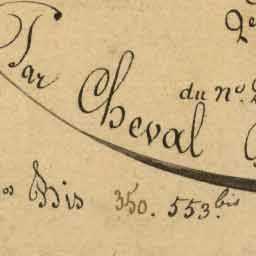 Par Cheval
du n°.
os Bis 350. 553.bis